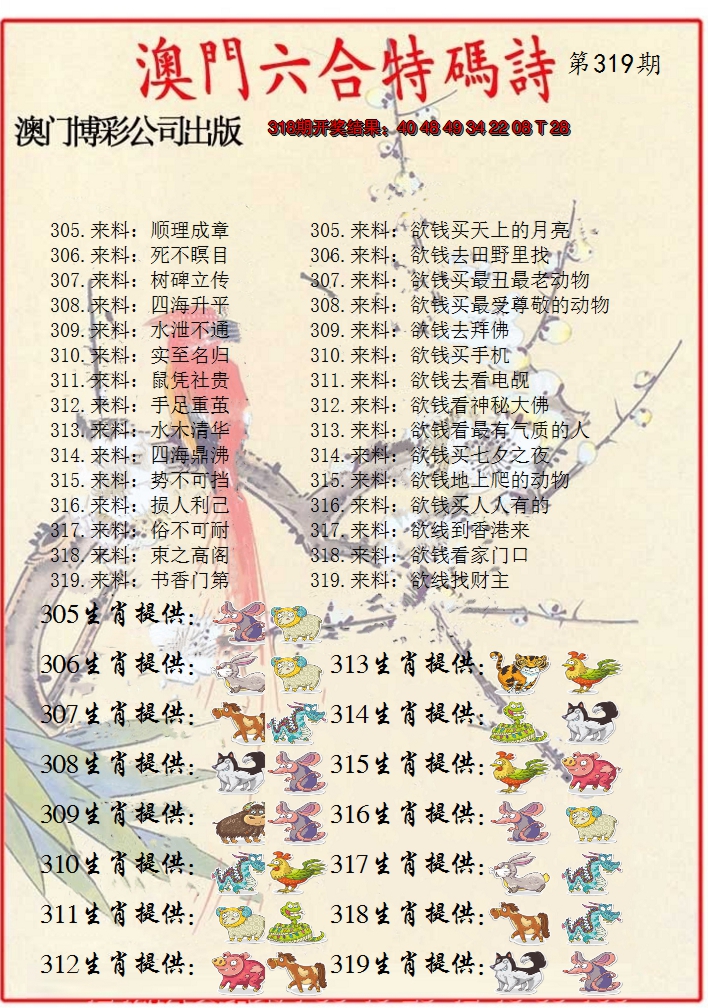 澳門六合特碼詩 第319期
澳门博彩公司出版 318期开奖结果：40 48 49 34 22 08 T 28
305.来料：顺理成章 305.来料：欲钱买天上的月亮
306.来料：死不瞑目 306.来料：欲钱去田野里找
307.来料：树碑立传 307.来料：欲钱买最丑最老动物
308.来料：四海升平 308.来料：欲钱买最受尊敬的动物
309.来料：水泄不通 309.来料：欲钱去拜佛
310.来料：实至名归 310.来料：欲钱买手机
311.来料：鼠凭社贵 311.来料：欲钱去看电觇
312.来料：手足重茧 312.来料：欲钱看神秘大佛
313.来料：水木清华 313.来料：欲钱看最有气质的人
314.来料：四海鼎沸 314.来料：欲钱买七夕之夜
315.来料：势不可挡 315.来料：欲钱地上爬的动物
316.来料：损人利己 316.来料：欲钱买人人有的
317.来料：俗不可耐 317.来料：欲线到香港来
318.来料：束之高阁 318.来料：欲钱看家门口
319.来料：书香门第 319.来料：欲线找财主
305生肖提供：
306生肖提供： 313生肖提供：
307生肖提供： 314生肖提供：
308生肖提供： 315生肖提供：
309生肖提供： 316生肖提供：
310生肖提供： 317生肖提供：
311生肖提供： 318生肖提供：
312生肖提供： 319生肖提供：